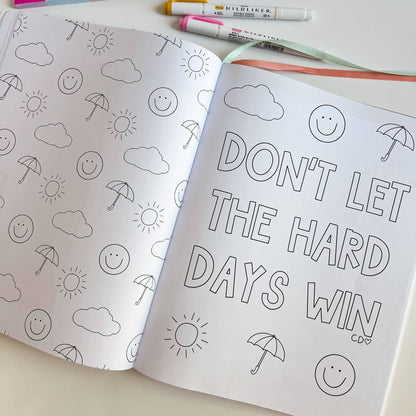 MILDLINER
MILDLINER
DON'T LET
THE HARD
DAYS WIN
CD♡
CD♡